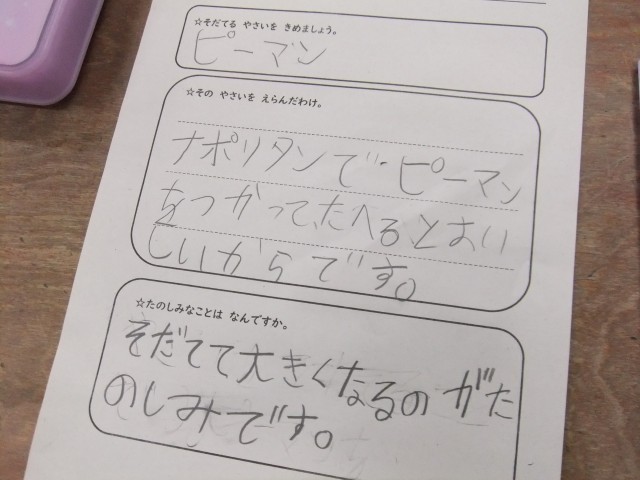 ☆そだてる やさいを きめましょう。
ピーマン
☆その やさいを えらんだわけ。
ナポリタンで ピーマン
をつかって、たへるとおい
しいからです。
☆たのしみなことは なんですか。
そだてて大きくなるのがた
のしみです。